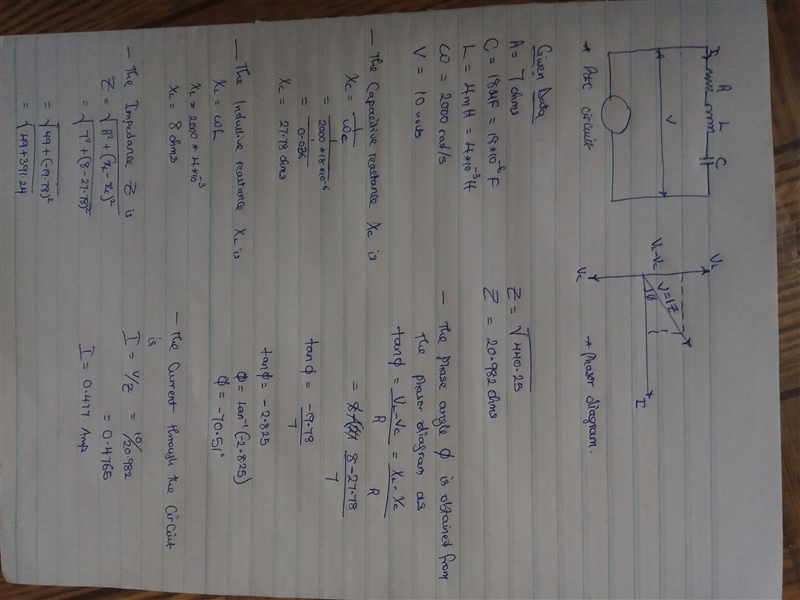 R L C
V
* RLC circuit
VL
VL-VC
V=IZ
φ
I
VC
→ phasor diagram.
Given Data
R = 7 ohms
C = 18μF = 18*10^-6 F
L = 4mH = 4*10^-3 H
ω = 2000 rad/s
V = 10 volts
— The Capacitive reactance Xc is
Xc = 1/ωc
= 1/2000*18*10^-6
= 1/0.036
Xc = 27.78 ohms
— The Inductive reactance XL is
XL = ωL
XL = 2000 * 4*10^-3
XL = 8 ohms
— The Impedance Z is
Z = √R²+(XL-Xc)²
= √7²+(8-27.78)²
= √49+(-19.78)²
= √49+391.24
Z = √440.25
Z = 20.982 ohms
— The phase angle φ is obtained from
the phasor diagram as
tanφ = VL-VC/R = XL-XC/R
= 8-27.78/7
tanφ = -19.78/7
tanφ = -2.825
φ = tan^-1(-2.825)
φ = -70.51°
— The Current through the Circuit
is
I = V/Z = 10/20.982
= 0.4765
I = 0.477 Amp